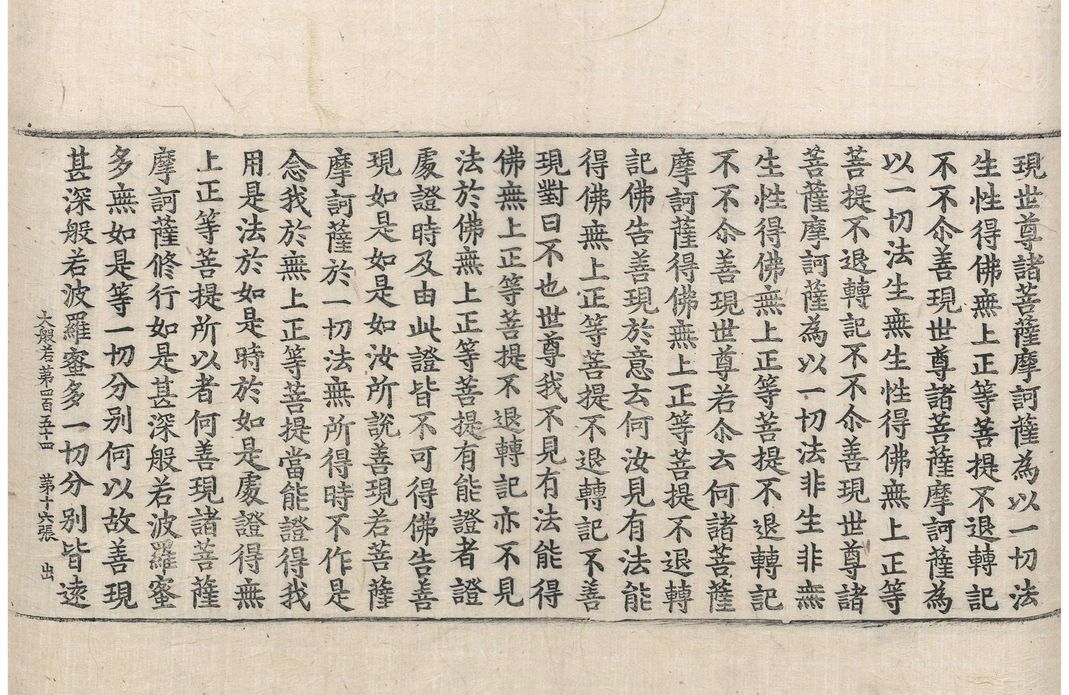 現世尊諸菩薩摩訶薩為以一切法
生性得佛無上正等菩提不退轉記
不不尒善現世尊諸菩薩摩訶薩為
以一切法生無生性得佛無上正等
菩提不退轉記不不尒善現世尊諸
菩薩摩訶薩為以一切法非生非無
生性得佛無上正等菩提不退轉記
不不尒善現世尊若尒云何諸菩薩
摩訶薩得佛無上正等菩提不退轉
記佛告善現於意云何汝見有法能
得佛無上正等菩提不退轉記不善
現對曰不也世尊我不見有法能得
佛無上正等菩提不退轉記亦不見
法於佛無上正等菩提有能證者證
處證時及由此證皆不可得佛告善
現如是如是如汝所說善現若菩薩
摩訶薩於一切法無所得時不作是
念我於無上正等菩提當能證得我
用是法於如是時於如是處證得無
上正等菩提所以者何善現諸菩薩
摩訶薩修行如是甚深般若波羅蜜
多無如是等一切分別何以故善現
甚深般若波羅蜜多一切分別皆遠
大般若第四百五十四 第十六張 出